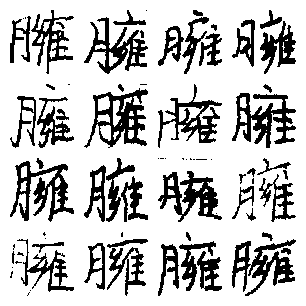 臃臃臃臃
臃臃臃臃
臃臃臃臃
臃臃臃臃